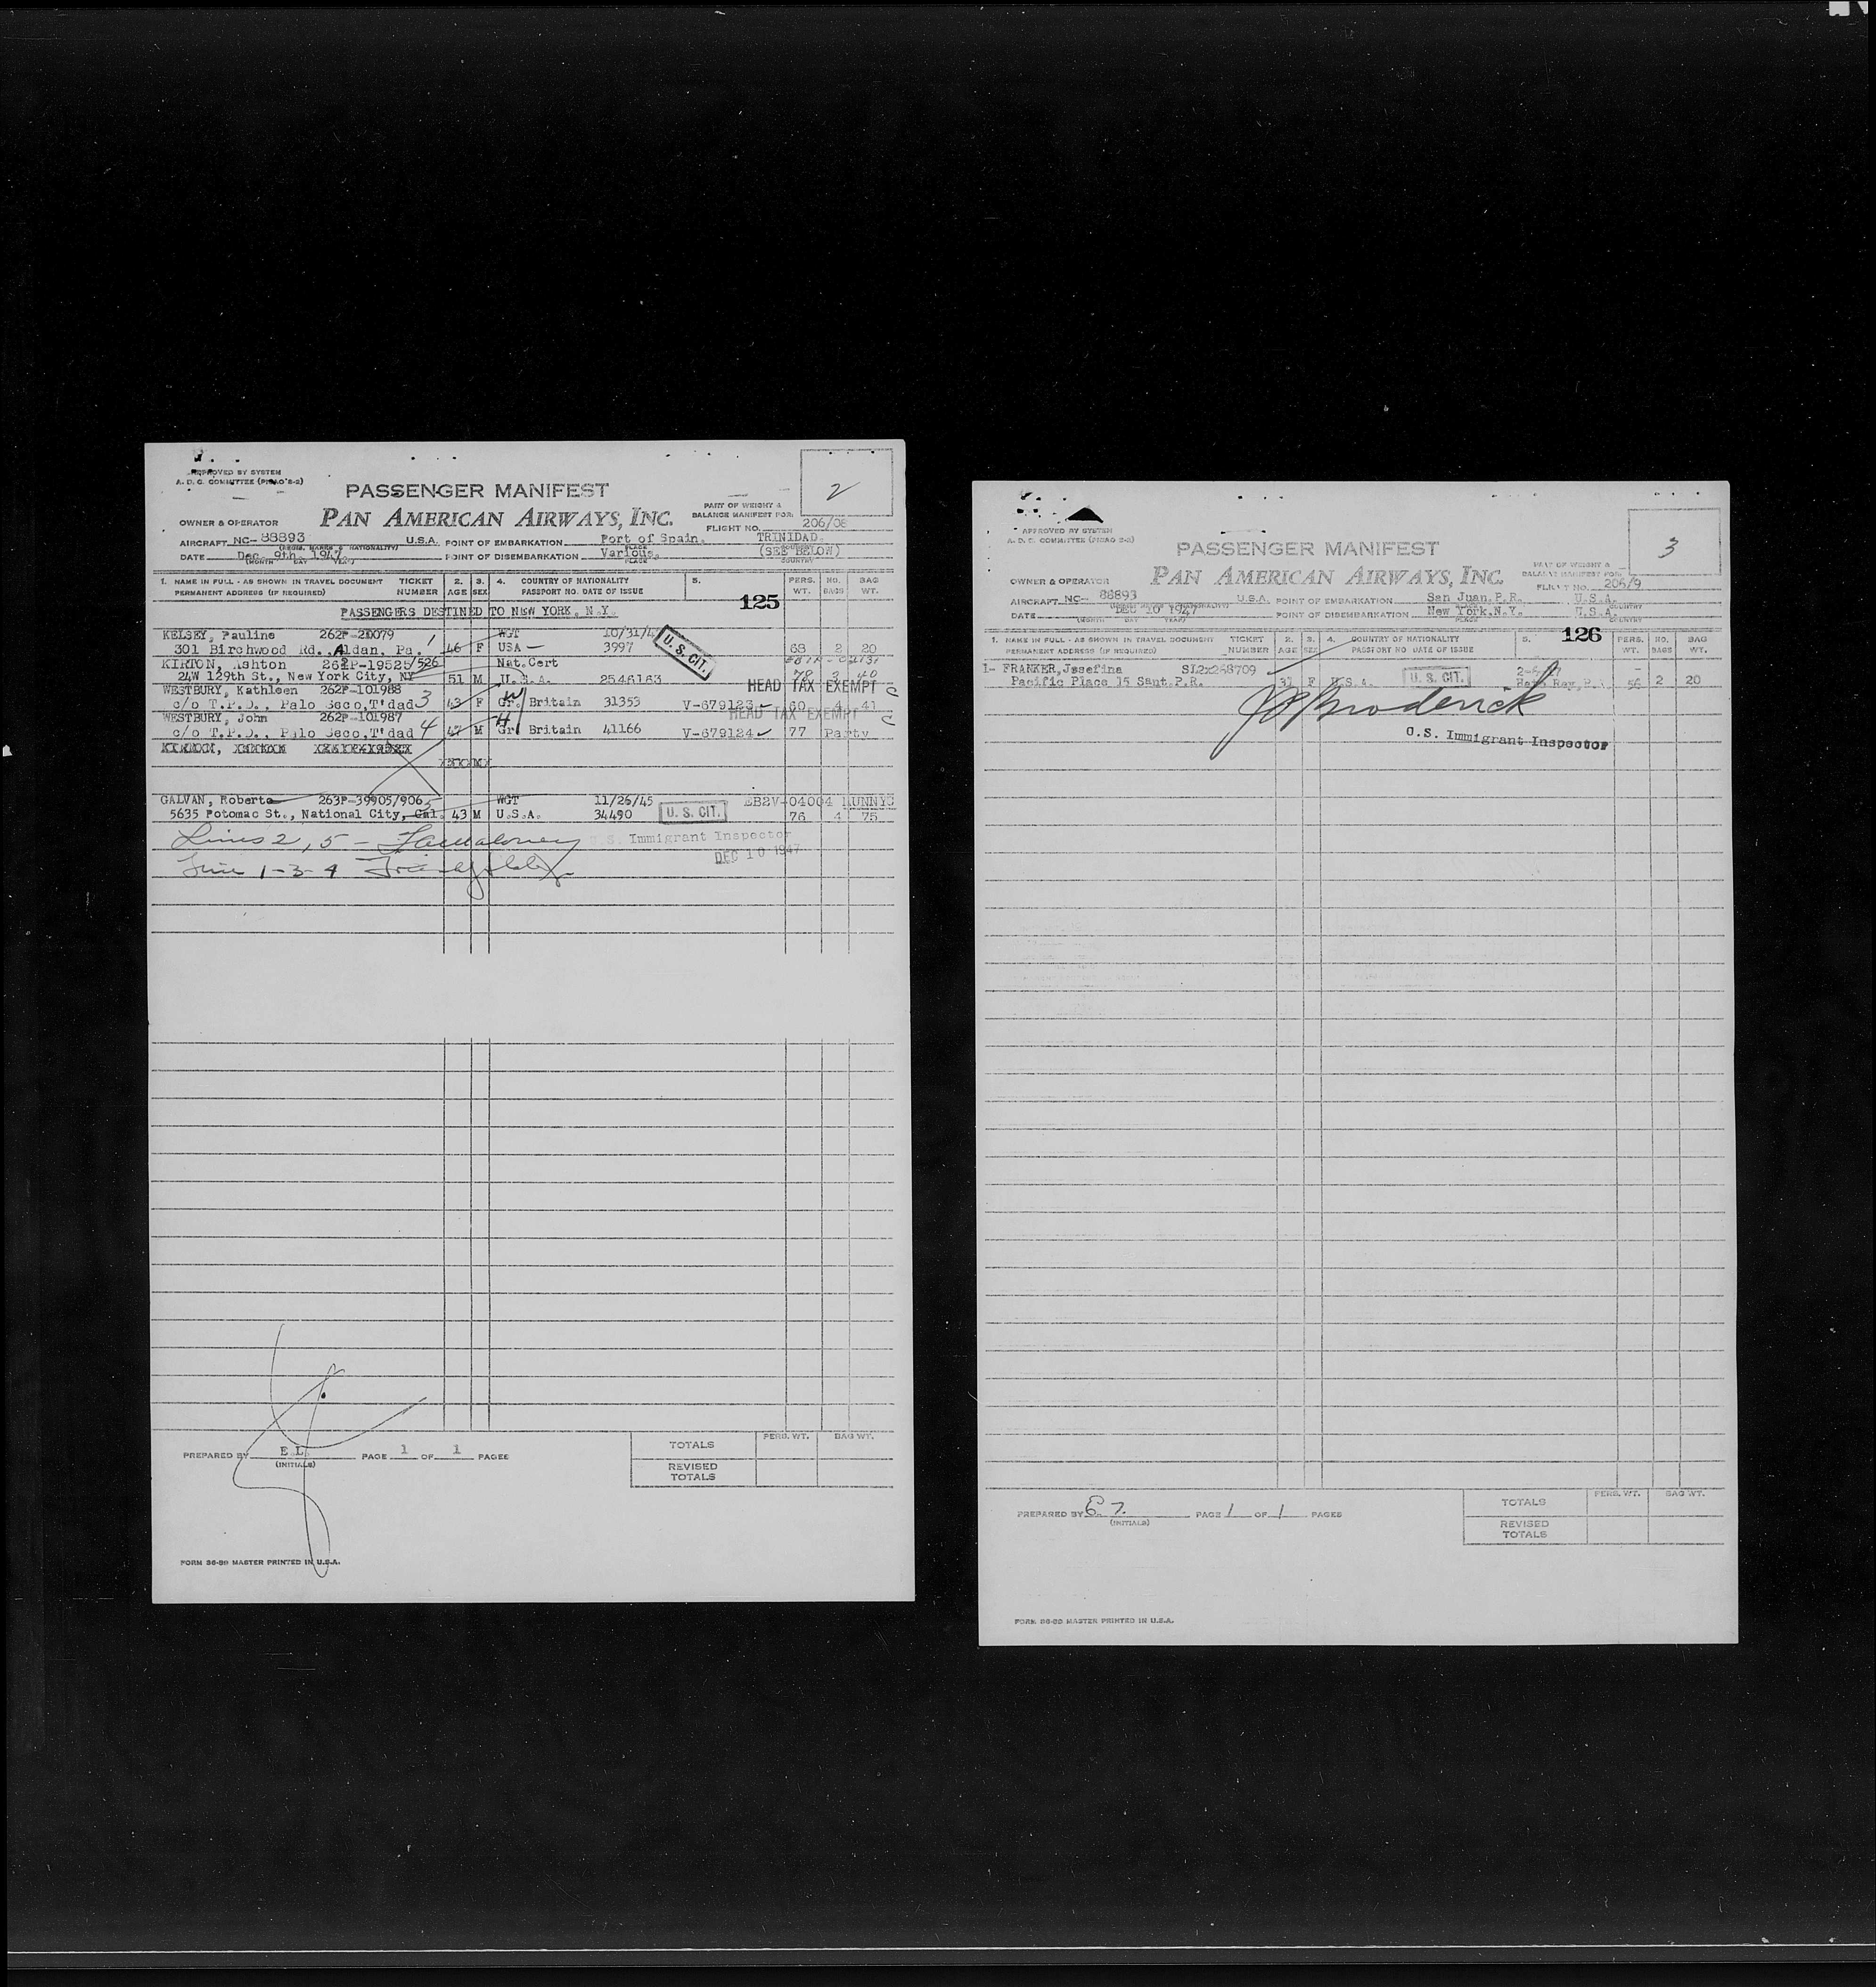 APPROVED BY SYSTEM
A. D. C. COMMITTEE (PICAO 8-2)
PASSENGER MANIFEST
2
PAN AMERICAN AIRWAYS, INC.
PART OF WEIGHT &
BALANCE MANIFEST FOR:
OWNER & OPERATOR
FLIGHT NO. 206/08
AIRCRAFT NC- 88893 U.S.A. POINT OF EMBARKATION Port of Spain. TRINIDAD.
(REGIS. MARKS & NATIONALITY) PLACE COUNTRY
DATE Dec. 9th. 1947. POINT OF DISEMBARKATION Various. (SEE BELOW)
(MONTH DAY YEAR) PLACE COUNTRY
1. NAME IN FULL - AS SHOWN IN TRAVEL DOCUMENT TICKET 2. 3. 4. COUNTRY OF NATIONALITY 5. PERS. NO. BAG
PERMANENT ADDRESS (IF REQUIRED) NUMBER AGE SEX PASSPORT NO. DATE OF ISSUE WT. BAGS WT.
125
PASSENGERS DESTINED TO NEW YORK, N.Y.
KELSEY, Pauline 262P-20079 1 WGT 10/31/4
301 Birchwood Rd., Aldan, Pa. 46 F USA 3997 U. S. CIT. 68 2 20
KIRTON, Ashton 262P-19525/526 Nat.Cert
24W 129th St., New York City, NY 51 M U.S.A. 2546163 78 3 40
WESTBURY, Kathleen 262P-101988 HEAD TAX EXEMPT C
c/o T.P.D., Palo Seco, T'dad 3 43 F W Gr. Britain 31353 V-679123 60 4 41
WESTBURY, John 262P-101987 HEAD TAX EXEMPT C
c/o T.P.D., Palo Seco, T'dad 4 47 M H Gr. Britain 41166 V-679124 77 Party
GALVAN, Roberto 263P-39905/906 5 WGT 11/26/45 EB2V-04004 MUNNYC
5635 Potomac St., National City, Cal. 43 M U.S.A. 34490 U. S. CIT. 76 4 75
Lines 2, 5 - U.S. Immigrant Inspector
DEC 10 1947
Line 1-3-4
PREPARED BY E.L. PAGE 1 OF 1 PAGES
(INITIALS)
TOTALS PERS. WT. BAG WT.
REVISED
TOTALS
FORM 36-80 MASTER PRINTED IN U.S.A.
APPROVED BY SYSTEM
A. D. C. COMMITTEE (PICAO 8-2)
PASSENGER MANIFEST
3
PAN AMERICAN AIRWAYS, INC.
PART OF WEIGHT &
BALANCE MANIFEST FOR:
OWNER & OPERATOR
FLIGHT NO. 206/9
AIRCRAFT NC- 88893 U.S.A. POINT OF EMBARKATION San Juan, P.R. U.S.A.
(REGIS. MARKS & NATIONALITY) PLACE COUNTRY
DATE DEC 10 1947 POINT OF DISEMBARKATION New York, N.Y. U.S.A.
(MONTH DAY YEAR) PLACE COUNTRY
126
1. NAME IN FULL - AS SHOWN IN TRAVEL DOCUMENT TICKET 2. 3. 4. COUNTRY OF NATIONALITY 5. PERS. NO. BAG
PERMANENT ADDRESS (IF REQUIRED) NUMBER AGE SEX PASSPORT NO DATE OF ISSUE WT. BAGS WT.
1- FRANKER, Josefina
Pacific Place 15 Sant. P.R. 31 F U.S.A. U. S. CIT. 56 2 20
Broderick
U.S. Immigrant Inspector
PREPARED BY PAGE 1 OF 1 PAGES
(INITIALS)
TOTALS PERS. WT. BAG WT.
REVISED
TOTALS
FORM 36-80 MASTER PRINTED IN U.S.A.